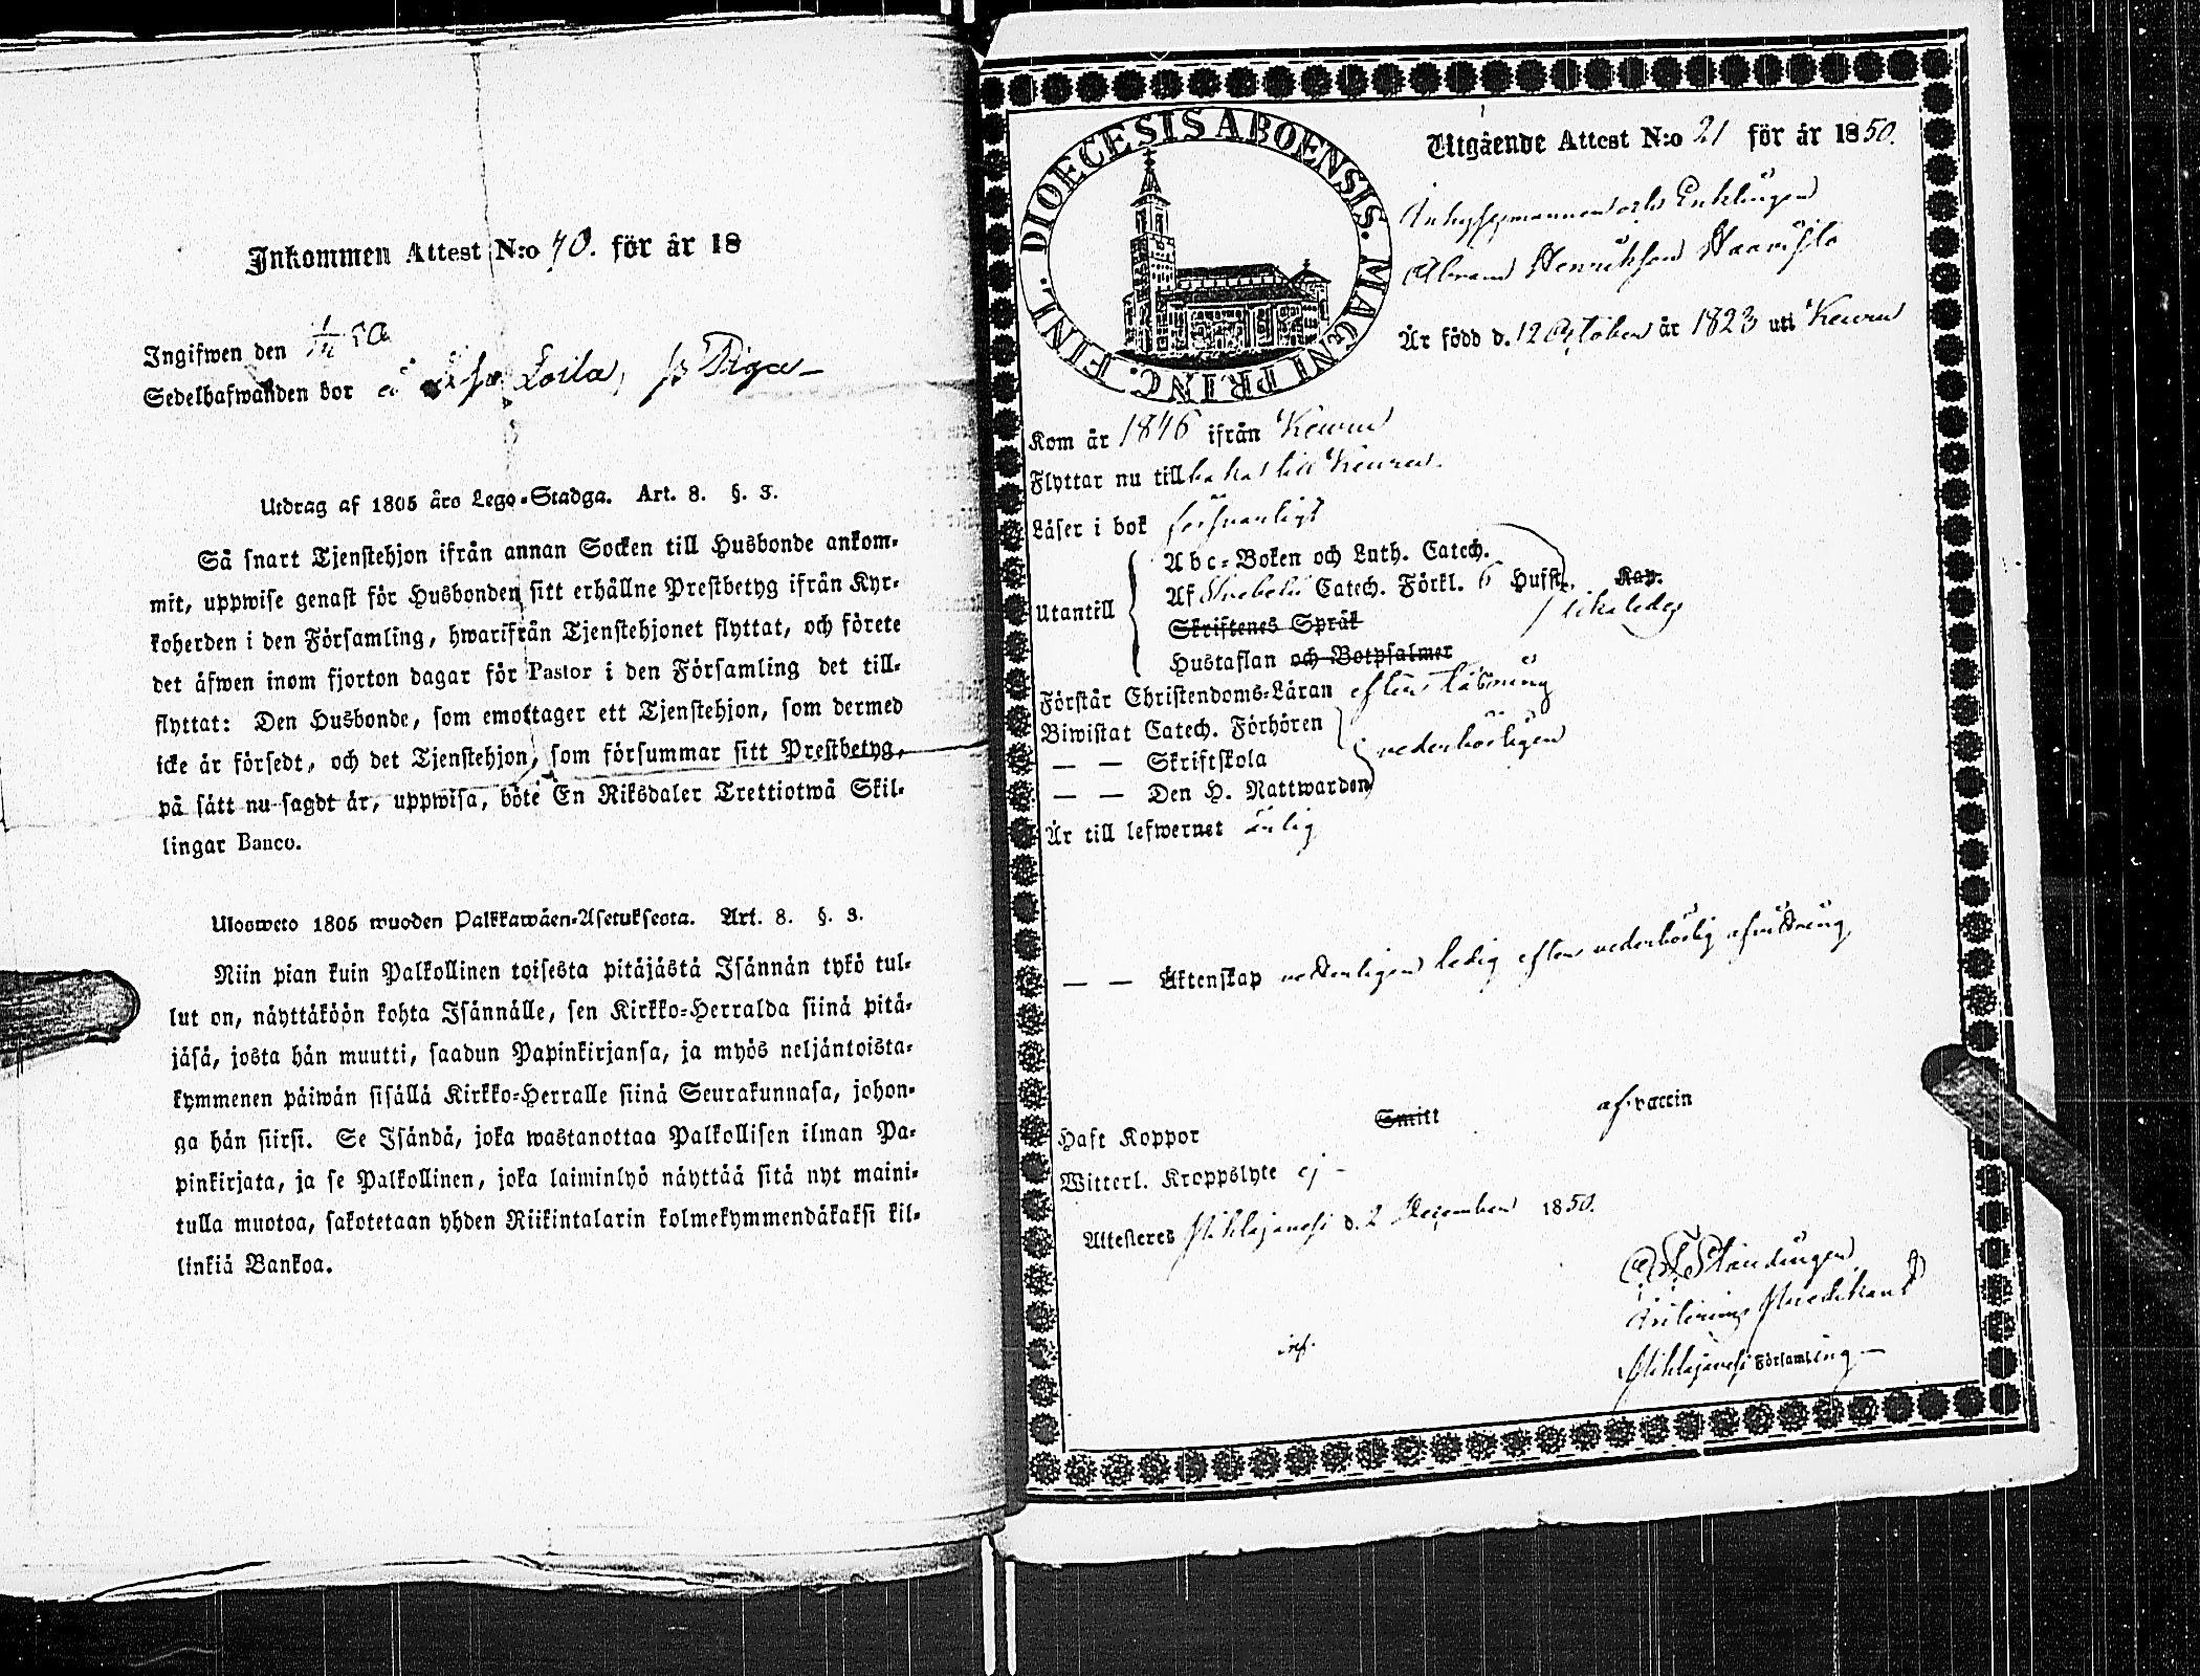 Inkommen Attest N:o 40. för år 18
Ingifwen den 50
Sedelhafwanden bor å Loila, ss Piga
Utdrag af 1805 års Lego-Stadga. Art. 8. §. 3.
Så snart Tjenstehjon ifrån annan Socken till Husbonde ankom-
mit, uppwise genast för Husbonden sitt erhållne Prestbetyg ifrån Kyr-
koherden i den Församling, hwarifrån Tjenstehjonet flyttat, och förete
det äfwen inom fjorton dagar för Pastor i den Församling det till-
flyttat: Den Husbonde, som emottager ett Tjenstehjon, som dermed
icke är försedt, och det Tjenstehjon, som försummar sitt Prestbetyg,
på sätt nu sagdt är, uppwisa, böte En Riksdaler Trettiotwå Skil-
lingar Banco.
Ulosweto 1805 wuoden Palkkawäen-Asetuksesta. Art. 8. §. 3.
Niin pian kuin Palkollinen toisesta pitäjästä Isännän tykö tul-
lut on, näyttäköön kohta Isännälle, sen Kirkko-Herralda siinä pitä-
jäsä, josta hän muutti, saadun Papinkirjansa, ja myös neljäntoista-
kymmenen päiwän sisällä Kirkko-Herralle siinä Seurakunnasa, johon-
ga hän siirsi. Se Isändä, joka wastanottaa Palkollisen ilman Pa-
pinkirjata, ja se Palkollinen, joka laiminlyö näyttää sitä nyt maini-
tulla muotoa, sakotetaan yhden Riikintalarin kolmekymmendäkaksi kil-
linkiä Bankoa.
DIOECESIS ABOENSIS. MAGNI PRINC. FINL.
Utgående Attest N:o 21 för år 1850.
Inhysesmannen och Enklingen
Abram Henriksson Haavisto
Är född d. 12 October år 1823 uti Keuru
Kom år 1846 ifrån Keuru
Flyttar nu tillbaka till Keuru.
Läser i bok försvarligt
Utantill
Abc-Boken och Luth. Catech.
Af Svebelii Catech. Förkl. 6 Hufst. Kap.
likaledes
Skriftenes Språk
Hustaflan och Botpsalmer
Förstår Christendoms-Läran efter läsning
Biwistat Catech. Förhören
— — Skriftskola vederbörligen
— — Den H. Nattwarden
Är till lefwernet ärlig
— — Äktenskap veterligen ledig efter vederbörlig afvittring
Haft Koppor Smitt af vaccin
Witterl. Kroppslyte ej -
Attesteras d. 2 December 1850.
Församling